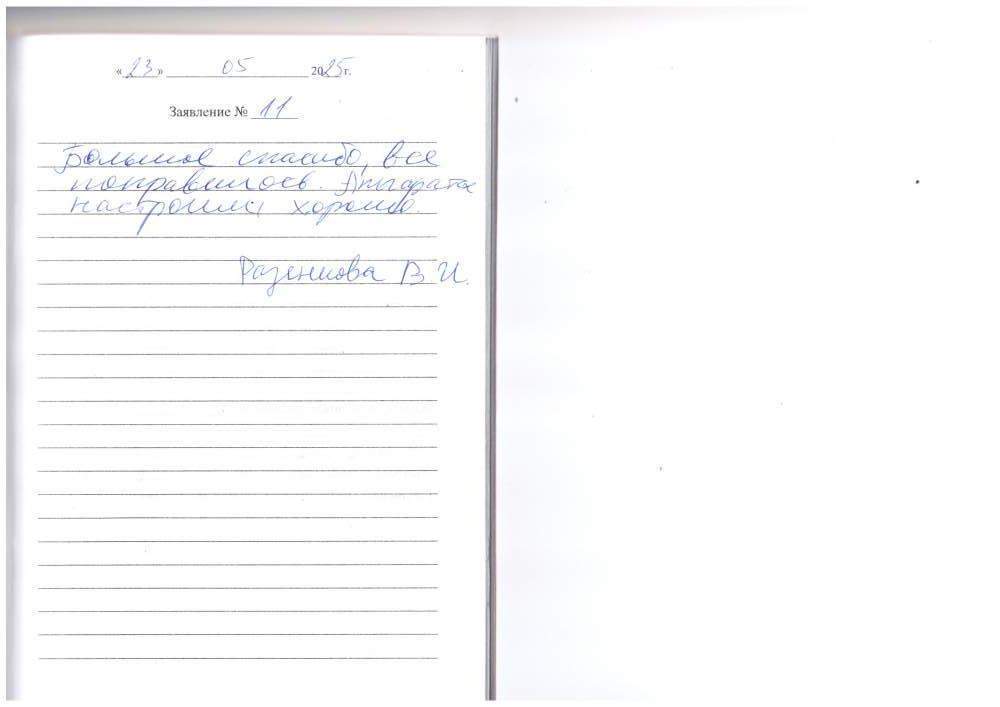 «23» 05 2025г.
Заявление № 11
Большое спасибо, все
понравилось. Аппарата
настроили хорошо.
Разенкова В И.